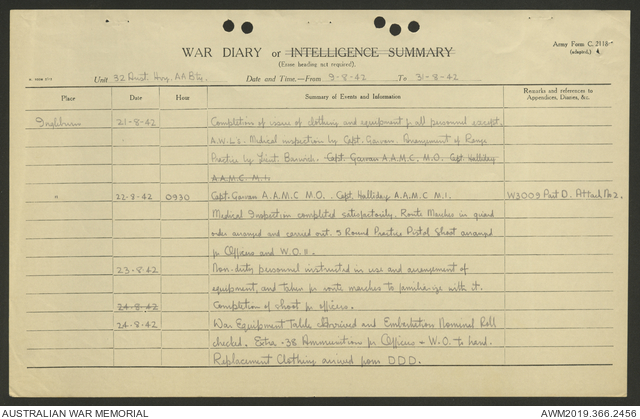 Army Form C. 2118
(adapted)
WAR DIARY or INTELLIGENCE SUMMARY
(Erase heading not required).
Unit 32 Aust. Hvy. A.A. Bty. Date and Time—From 9-8-42 To 31-8-42
Place Date Hour Summary of Events and Information Remarks and references to Appendices, Diaries, &c.
Ingleburn 21-8-42 Completion of issues of clothing and equipment for all personnel except
A.W.L's. Medical inspection by Capt. Gawan. Arrangement of Range
Practice by Lieut Barwick. Capt. Gawan A.A.M.C. M.O. Capt. Halliday
A.A.M.C. M.I.
" 22-8-42 0930 Capt. Gawan A.A.M.C M.O. Capt. Halliday A.A.M.C M.I. W3009 Part D. Attach No 2.
Medical Inspection completed satisfactorily. Route Marches in guard
order arranged and carried out. 5 Round Practice Pistol Shoot arranged
for Officers and W.O.II.
23-8-42 Non-duty personnel instructed in use and arrangement of
equipment, and taken for route marches to familiarize with it.
24-8-42 Completion of shoot for officers.
24-8-42 War Equipment Table arrived and Embarkation Nominal Roll
checked. Extra .38 Ammunition for Officers + W.O. to hand.
Replacement Clothing arrived from D.D.D.
AUSTRALIAN WAR MEMORIAL AWM2019.366.2456